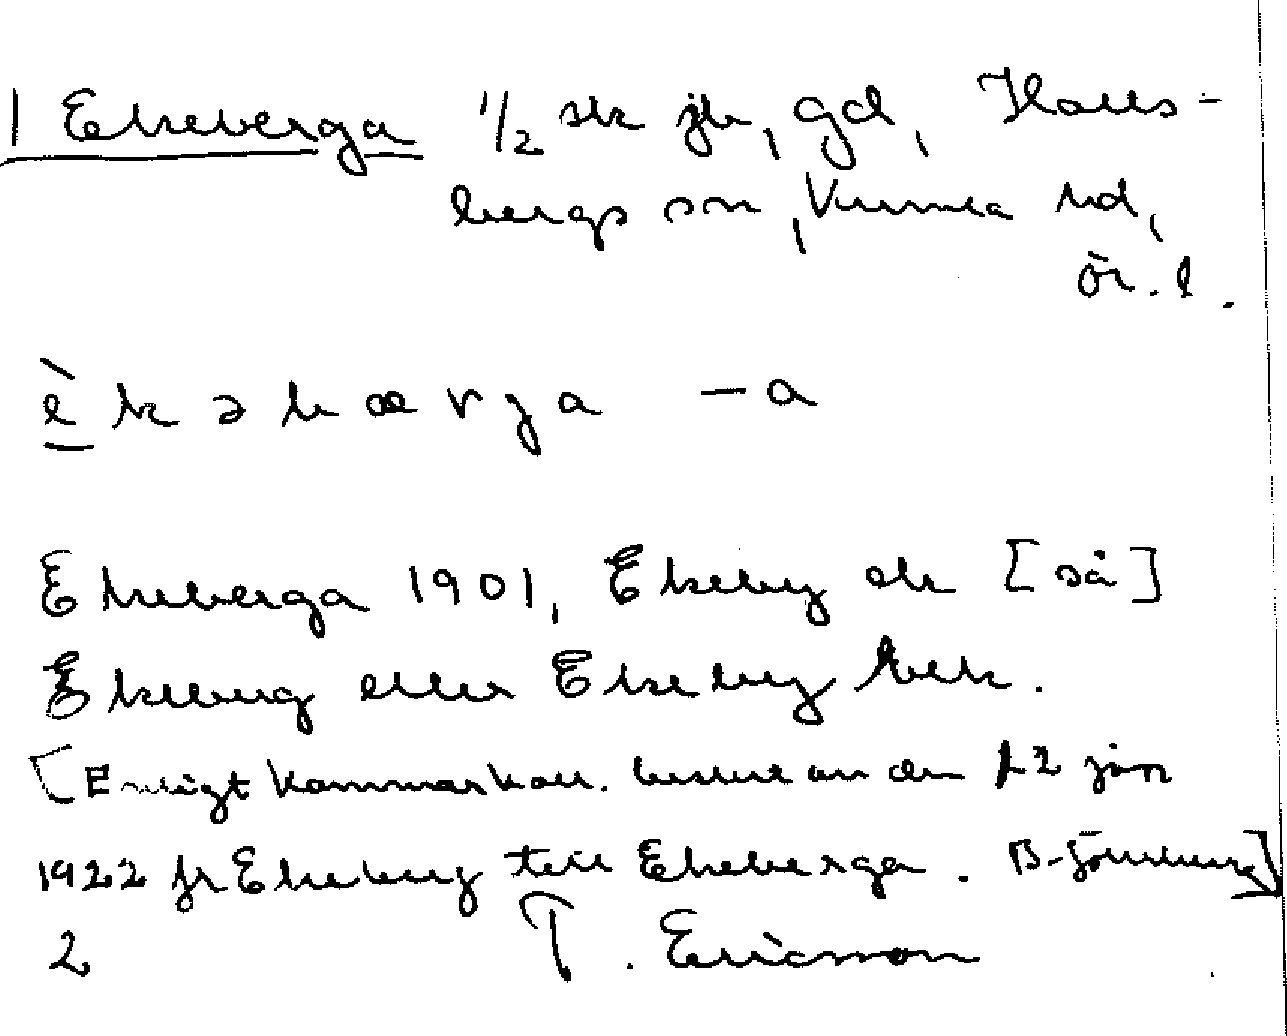 1 Ekeberga 1/2 sk jb, gd, Halls-
bergs sn, Kumla hd,
ör. l.
è k ə b æ r g a – a
Ekeberga 1901, Ekeby ek [så]
Ekeberg eller Ekeby bek.
[Enligt Kammarkoll. beslut av den 12 jan
1922 fr Ekeby till Ekeberga.
2 T. Ericsson